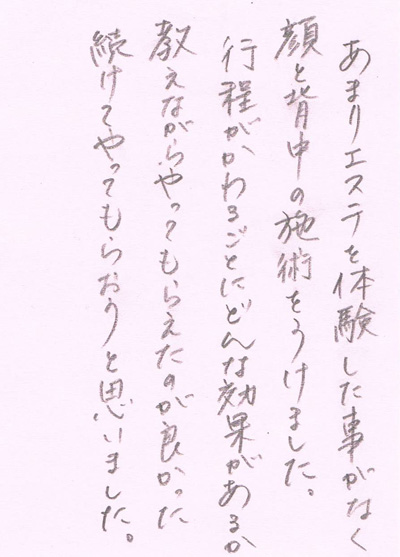 あまりエステを体験した事がなく
顔と背中の施術をうけました。
行程がかわるごとにどんな効果があるか
教えながらやってもらえたのが良かった
続けてやってもらおうと思いました。